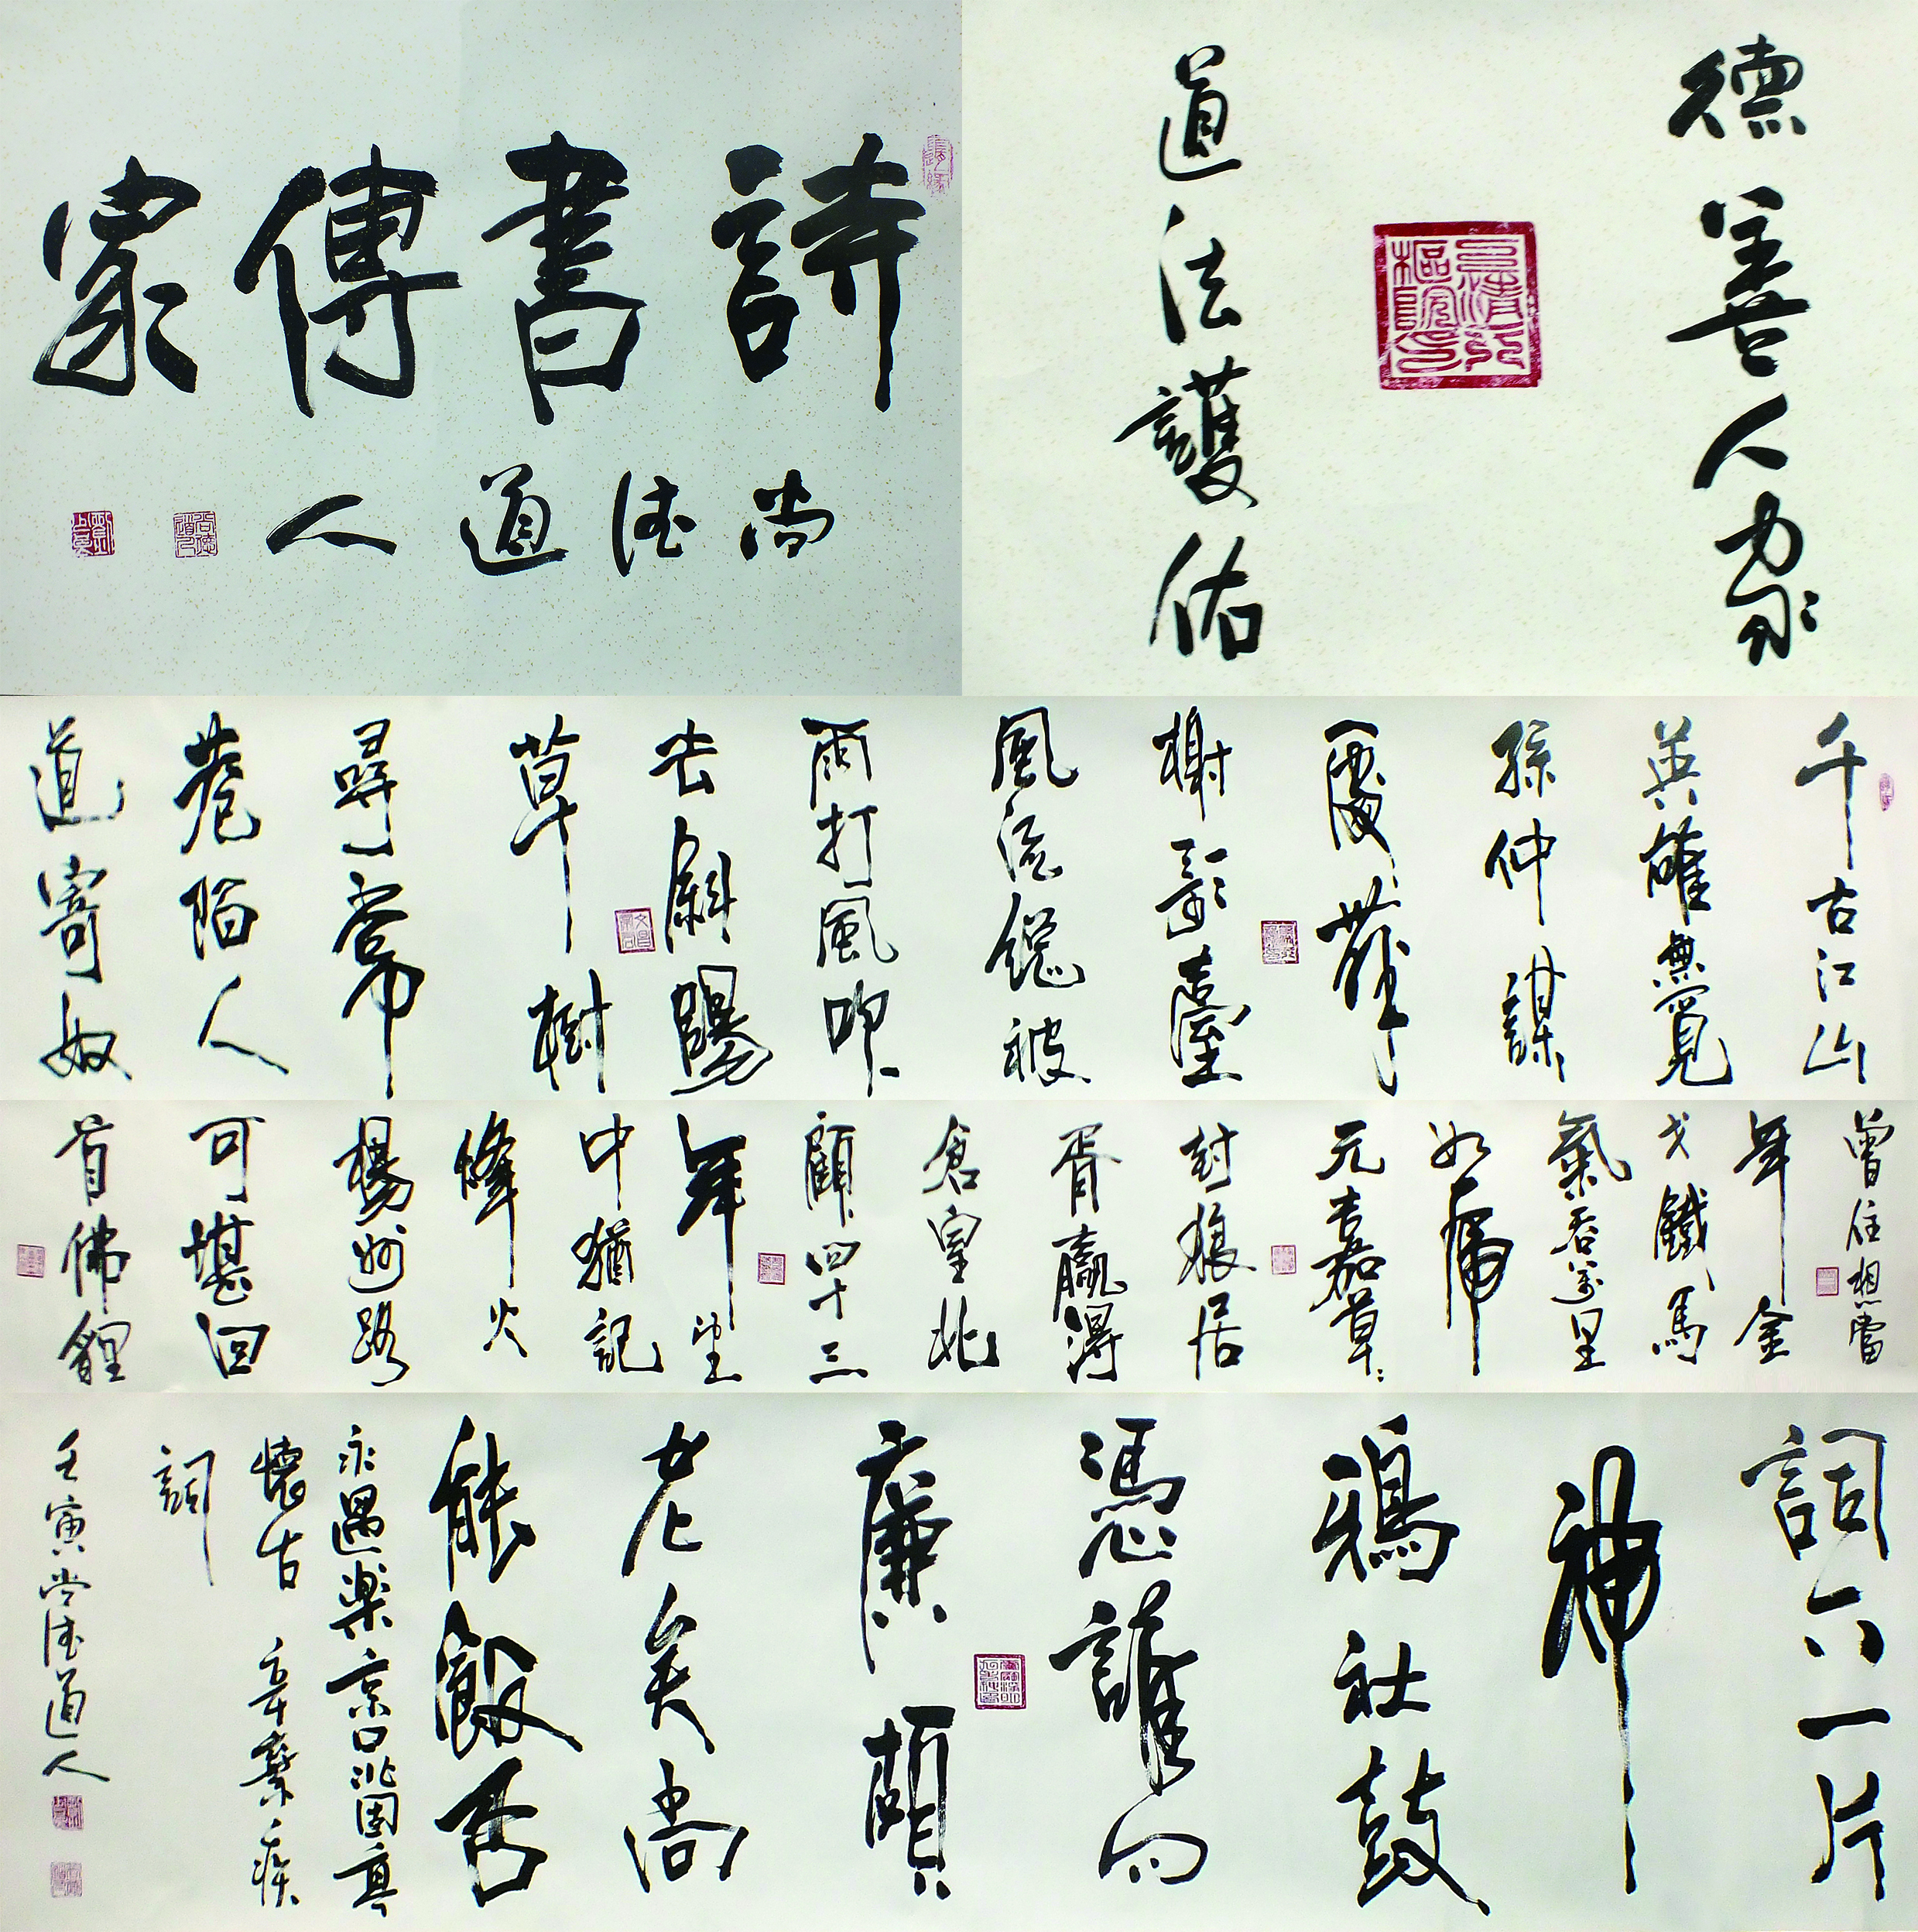 詩書傳家
尚德道人
德善人家
道法護佑
千古江山
英雄無覓
孫仲謀
處舞
榭歌臺
風流總被
雨打風吹
去斜陽
草樹
尋常
巷陌人
道寄奴
曾住想當
年金
戈鐵馬
氣吞萬里
如虎
元嘉草草
封狼居
胥贏得
倉皇北
顧四十三
年望
中猶記
烽火
楊州路
可堪回
首佛貍
詞下一片
神
鴉社鼓
憑誰問
廉頗
老矣尚
能飯否
永遇樂京口北固亭
懷古 辛棄疾
詞
壬寅尚德道人